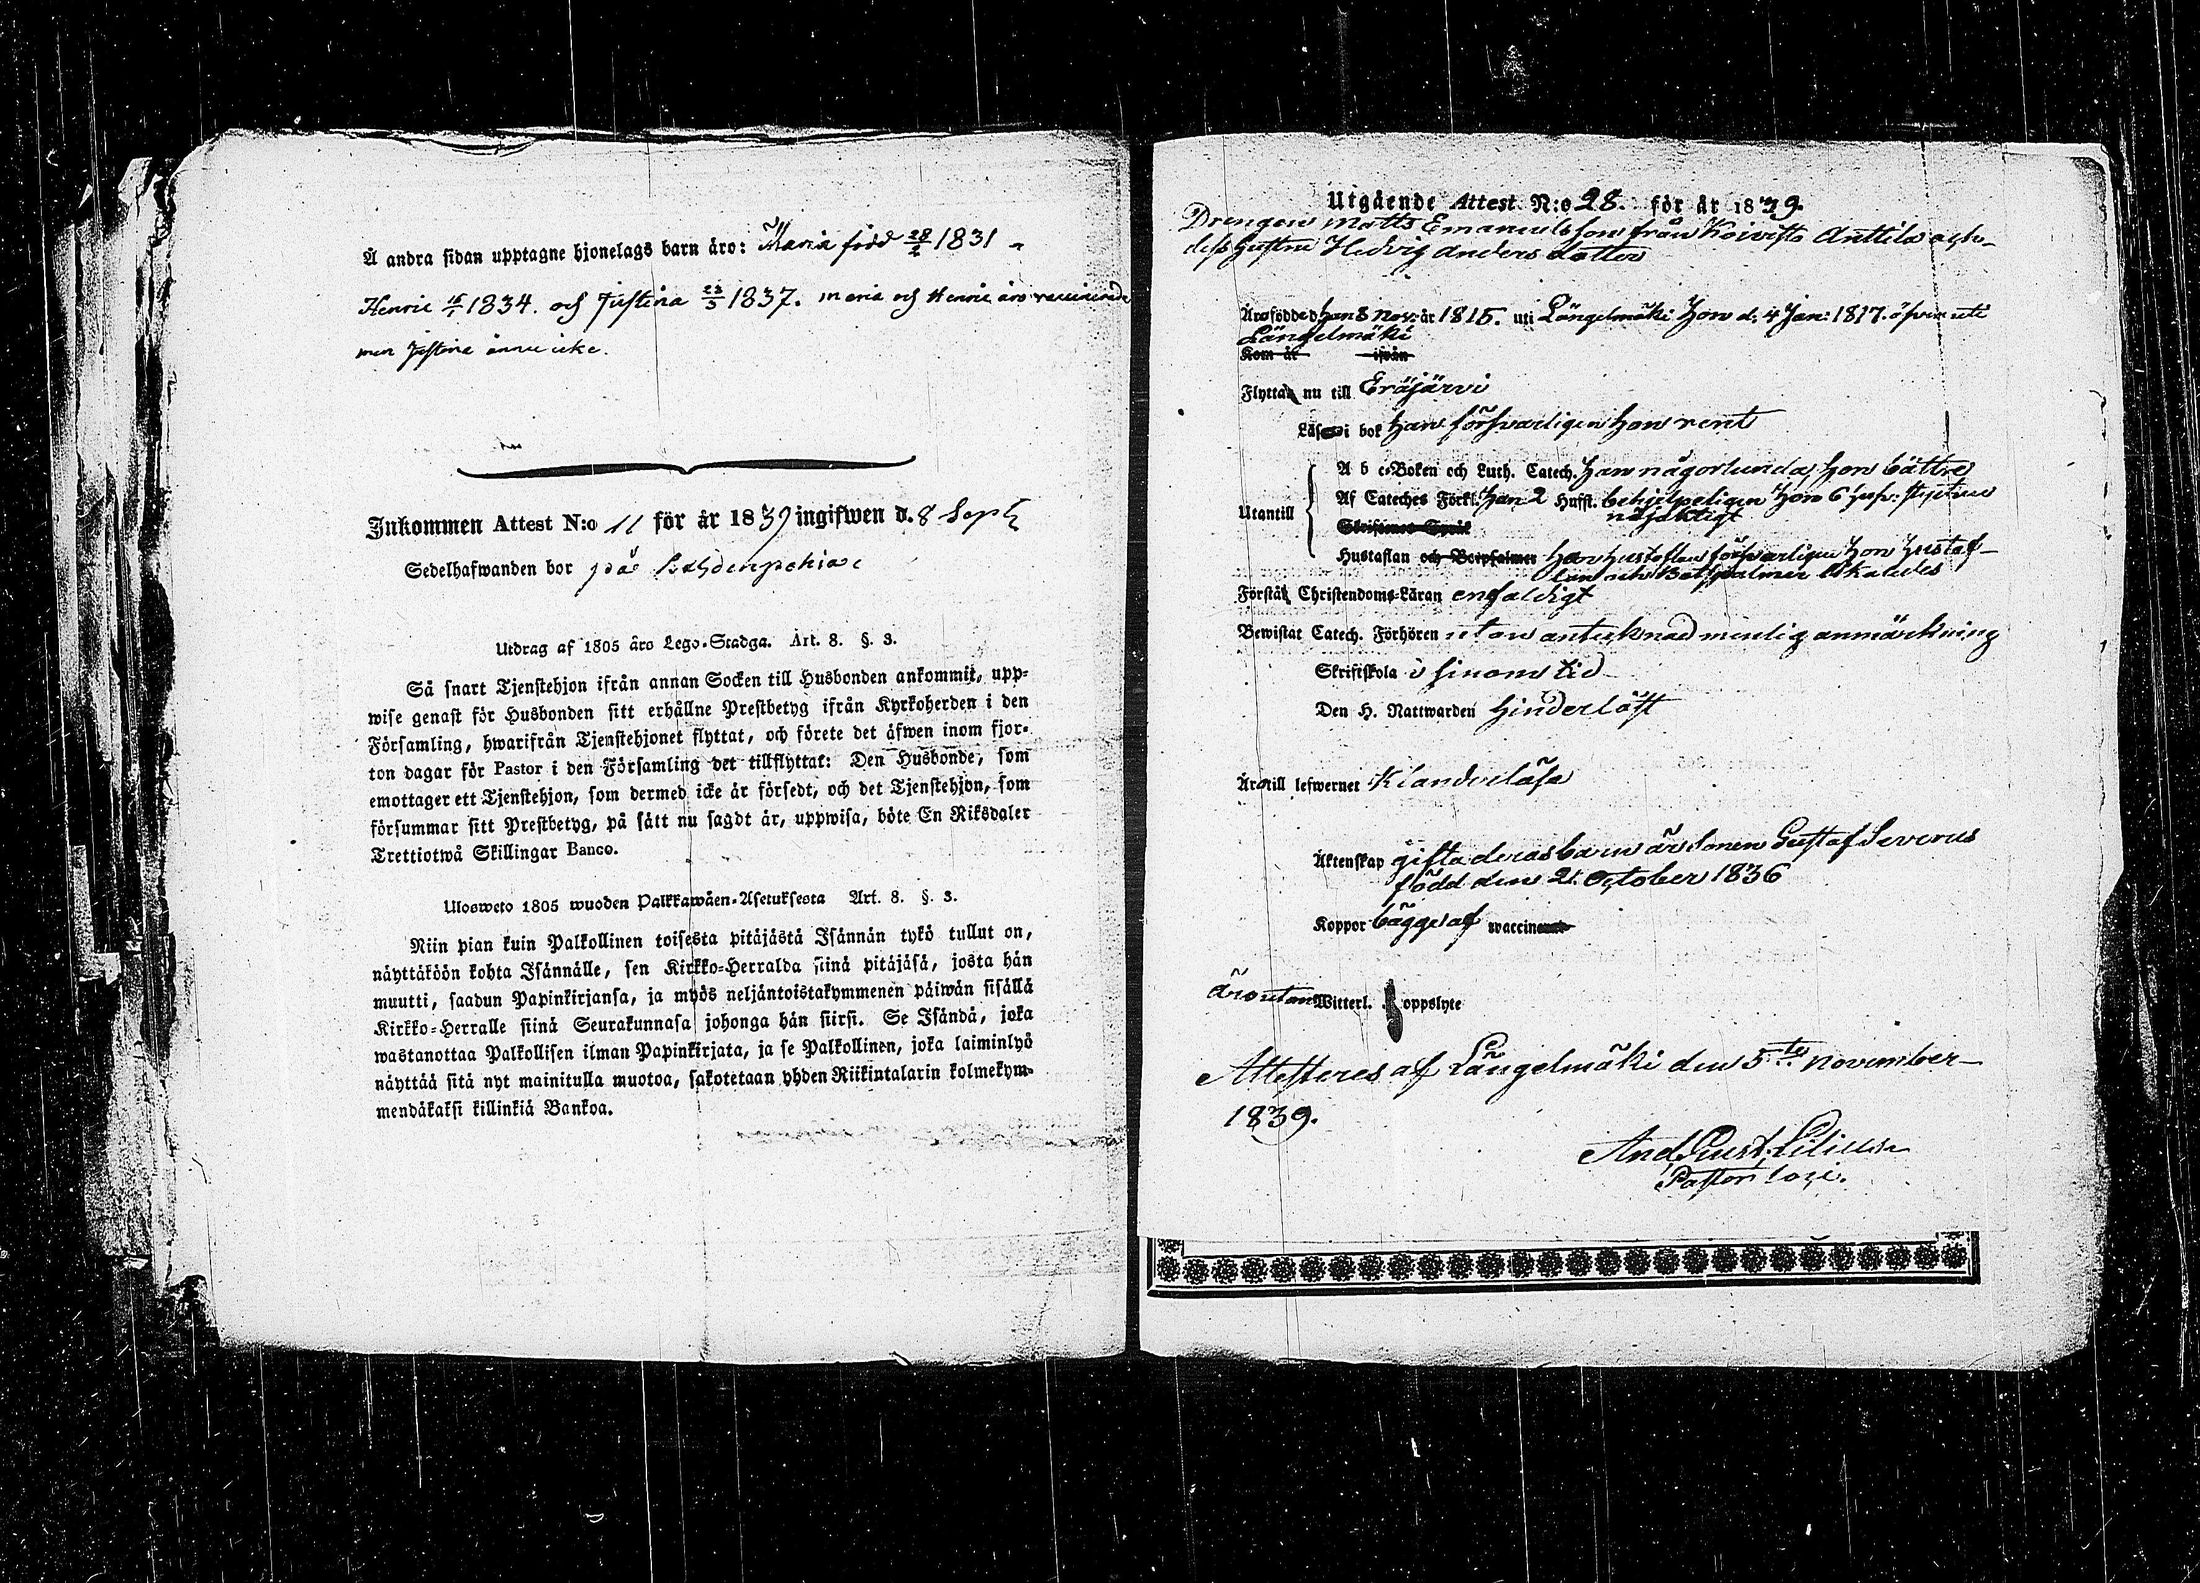 Å andra sidan upptagne hjonelags barn äro: Maria född 28/2 1831
Henric 16/1 1834. och Justina 23/5 1837. Maria och Henric äro vaccinerade
men Justina ännu icke.
Inkommen Attest N:o 11 för år 1839 ingifwen d. 8 Sept
Sedelhafwanden bor på
Utdrag af 1805 års Lego-Stadga. Art. 8. §. 3.
Så snart Tjenstehjon ifrån annan Socken till Husbonden ankommit, upp-
wise genast för Husbonden sitt erhållne Prestbetyg ifrån Kyrkoherden i den
Församling, hwarifrån Tjenstehjonet flyttat, och förete det äfwen inom fjor-
ton dagar för Pastor i den Församling det tillflyttat: Den Husbonde, som
emottager ett Tjenstehjon, som dermed icke är försedt, och det Tjenstehjon, som
försummar sitt Prestbetyg, på sätt nu sagdt är, uppwisa, böte En Riksdaler
Trettiotwå Skillingar Banco.
Ulosweto 1805 wuoden Palkkawäen-Asetuksesta Art. 8. §. 3.
Niin pian kuin Palkollinen toisesta pitäjästä Isännän tykö tullut on,
näyttäköön kohta Isännälle, sen Kirkko-Herralda siinä pitäjäsä, josta hän
muutti, saadun Papinkirjansa, ja myös neljäntoistakymmenen päiwän sisällä
Kirkko-Herralle siinä Seurakunnasa johonga hän siirsi. Se Isändä, joka
wastanottaa Palkollisen ilman Papinkirjata, ja se Palkollinen, joka laiminlyö
näyttää sitä nyt mainitulla muotoa, sakotetaan yhden Riikintalarin kolmekym-
mendäkaksi killinkiä Bankoa.
Utgående Attest N:o 28. för år 1839.
Drengen Matts Emanuelsson från Koivisto Anttila och
dess hustru Hedvig Anders dotter
Äro födde d. han 8 Nov. år 1815. uti Längelmäki hon d. 4 Jan: 1817. äfven uti
Längelmäki
Kom år ifrån
Flytta nu till Eräjärvi
Läsa i bok han försvarligen hon rent
Utantill
A b c-Boken och Luth. Catech. han någorlunda, hon bättre
Af Cateches Förkl. han 2 Hufst. behjelpeligen hon 6 hufv: stycken
nöjaktigt
Skriftenes Språk
Hustaflan och Botpsalmer han hustaflan försvarligen hon hustaf-
lan och Botpsalmer likaledes
Förstå Christendoms-Läran enfaldigt
Bewistat Catech. Förhören utan anteknad menlig anmärkning
Skriftskola i sinom tid
Den H. Nattwarden hinderlöst
Äro till lefwernet Klanderlösa
Äktenskap gifta deras barn är sonen Gustaf Severus
född den 21 October 1836
Koppor bägge af waccin
äro utan Witterl. oppslyte
Attesteras af Längelmäki den 5te November
1839.
And. Gust. Lilius
Pastor loci.